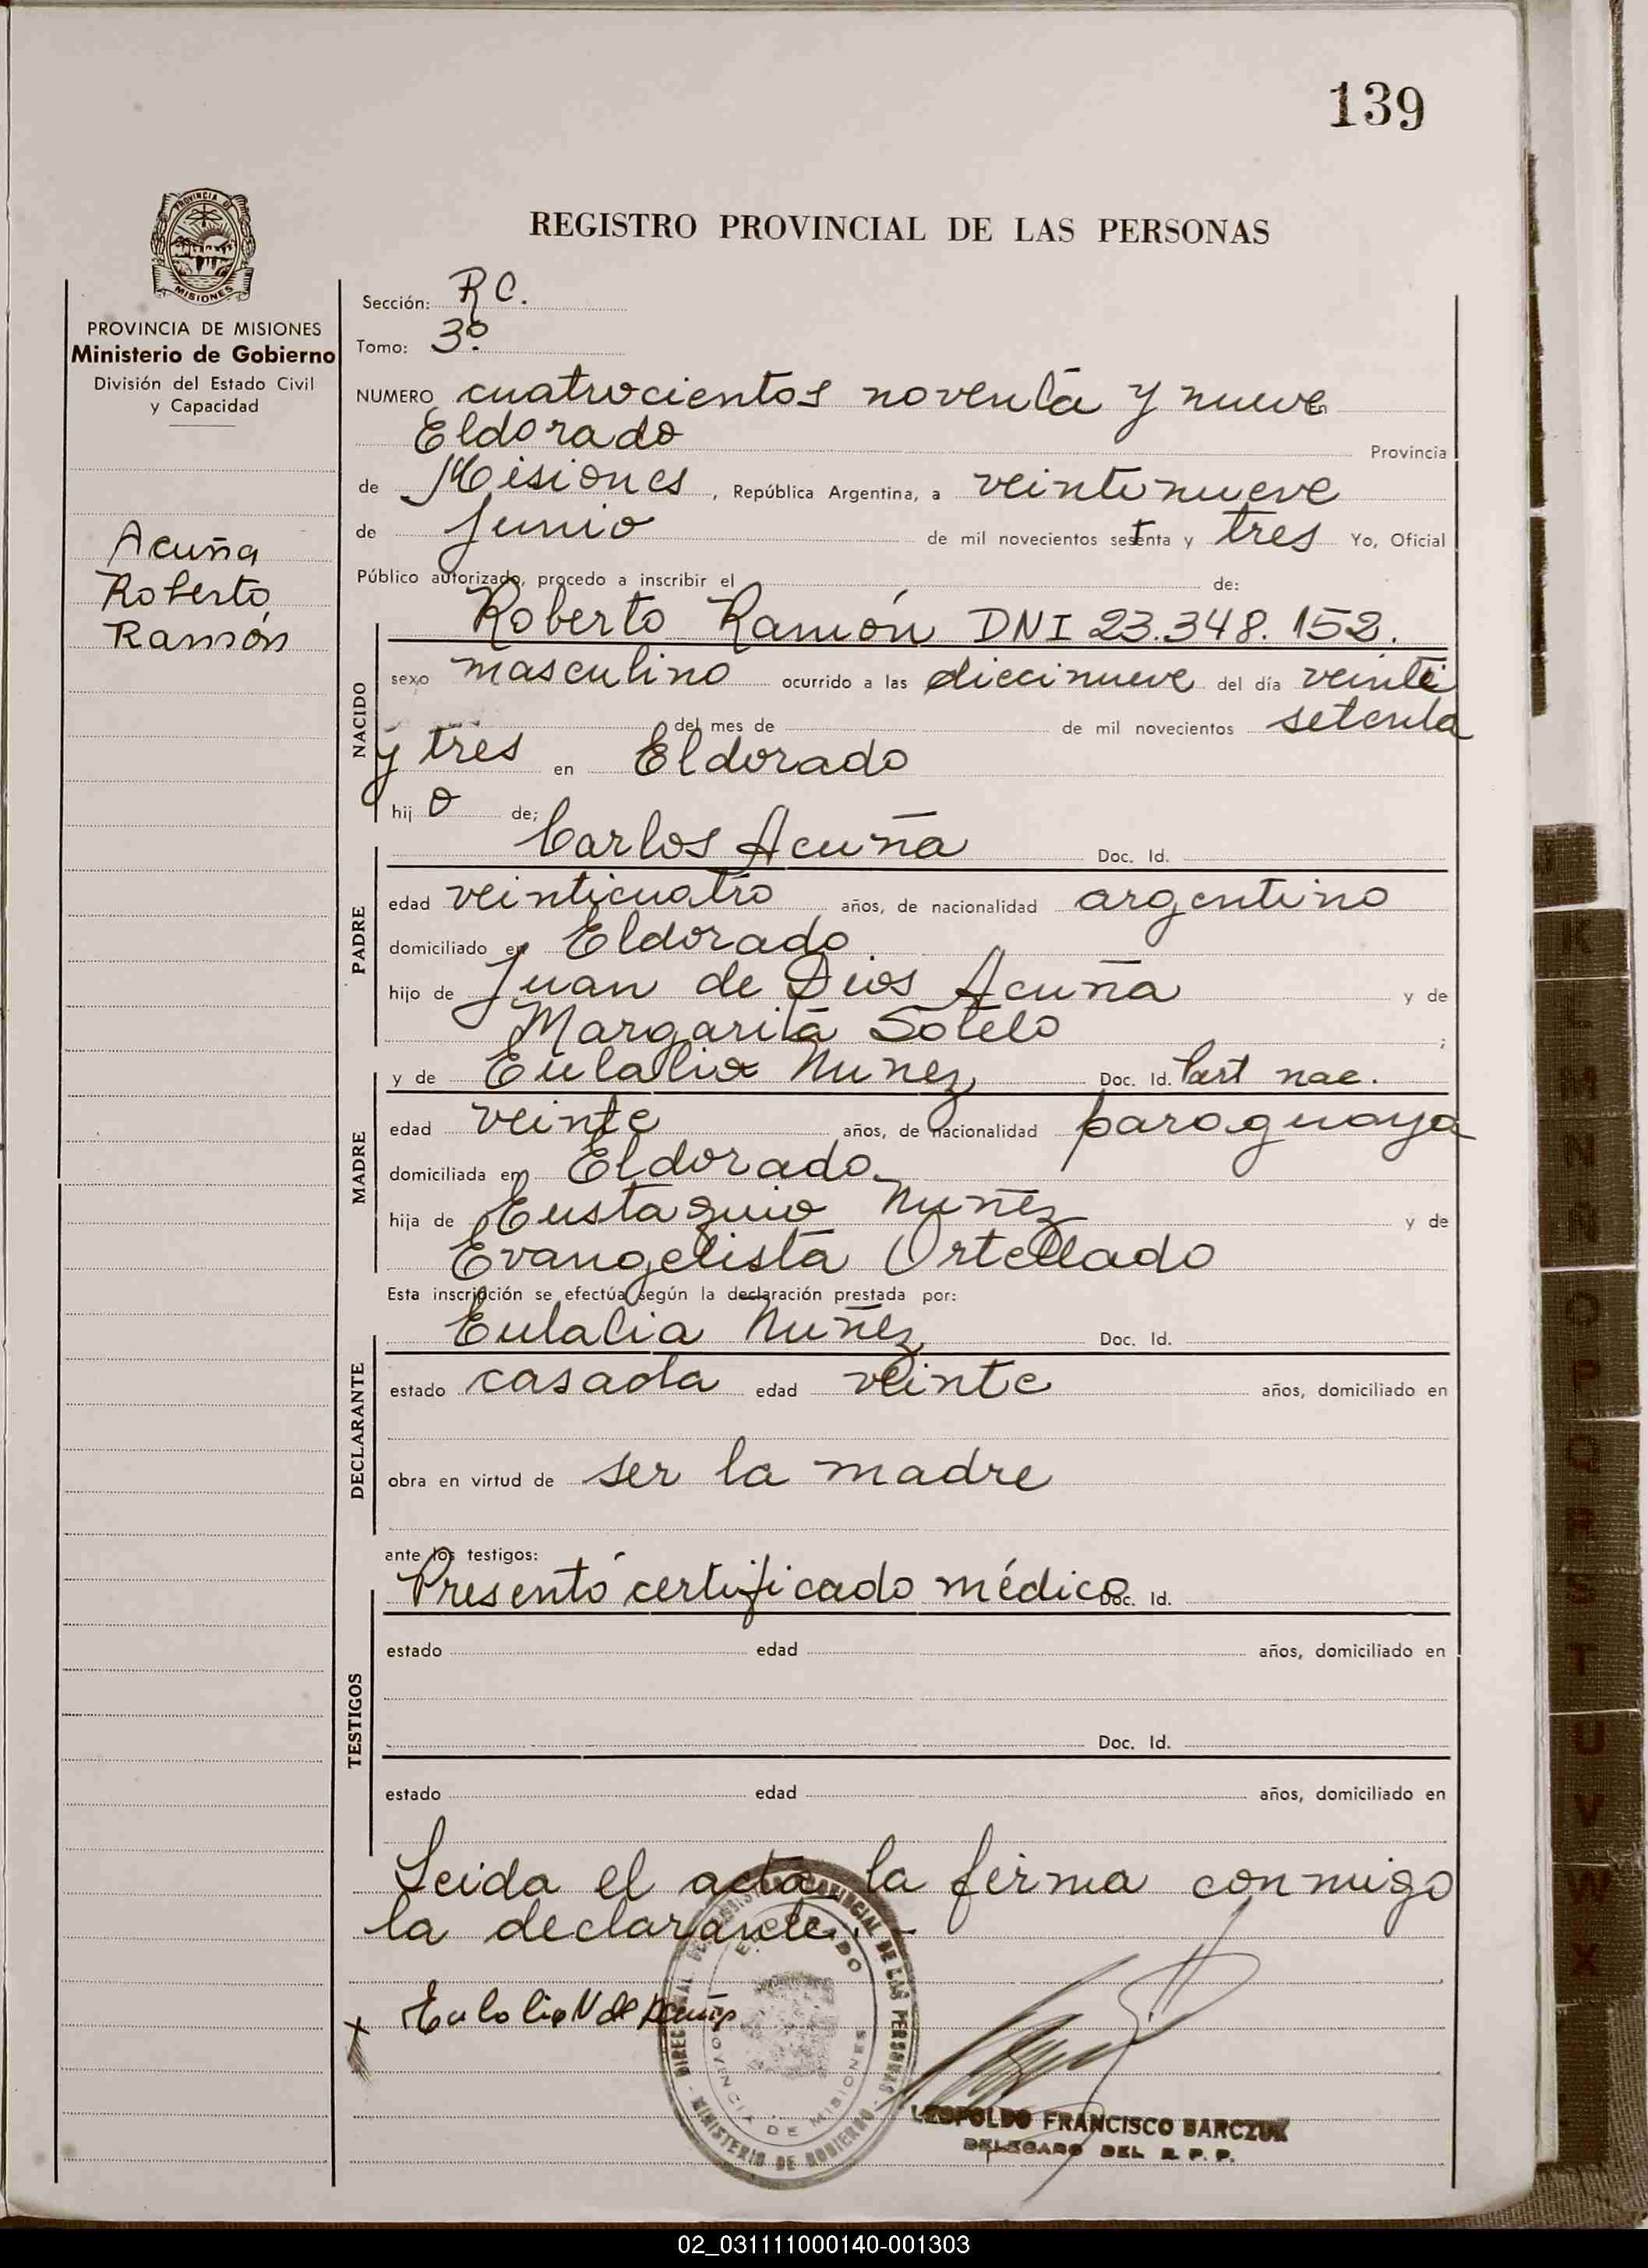 139
PROVINCIA DE
MISIONES
PROVINCIA DE MISIONES
Ministerio de Gobierno
División del Estado Civil
y Capacidad
Acuña
Roberto
Ramón
REGISTRO PROVINCIAL DE LAS PERSONAS
Sección: RC.
Tomo: 3º
NUMERO cuatrocientos noventa y nueve
Eldorado Provincia
de Misiones, República Argentina, a veintinueve
de junio de mil novecientos setenta y tres Yo, Oficial
Público autorizado, procedo a inscribir el de:
Roberto Ramón DNI 23.348.152.
NACIDO
sexo masculino ocurrido a las diecinueve del día veinti
del mes de de mil novecientos setenta
y tres en Eldorado
hijo de;
Carlos Acuña Doc. Id.
PADRE
edad veinticuatro años, de nacionalidad argentino
domiciliado en Eldorado
hijo de Juan de Dios Acuña y de
Margarita Sotelo ;
y de Eulalia Nuñez Doc. Id. Cert nac.
MADRE
edad veinte años, de nacionalidad paraguaya
domiciliada en Eldorado
hija de Eustaquio Nuñez y de
Evangelista Ortellado
Esta inscripción se efectúa según la declaración prestada por:
Eulalia Nuñez Doc. Id.
DECLARANTE
estado casada edad veinte años, domiciliado en
obra en virtud de ser la madre
ante los testigos:
Presentó certificado médico Doc. Id.
TESTIGOS
estado edad años, domiciliado en
Doc. Id.
estado edad años, domiciliado en
Leida el acta la firma conmigo
la declarante.-
Eulalia N de Acuña
ELDORADO
PROVINCIA DE MISIONES
MINISTERIO DE GOBIERNO
LEOPOLDO FRANCISCO BARCZUK
DELEGADO DEL R. P. P.
J
K
L
M
N
Ñ
O
P
Q
R
S
T
U
V
W
X
02_031111000140-001303